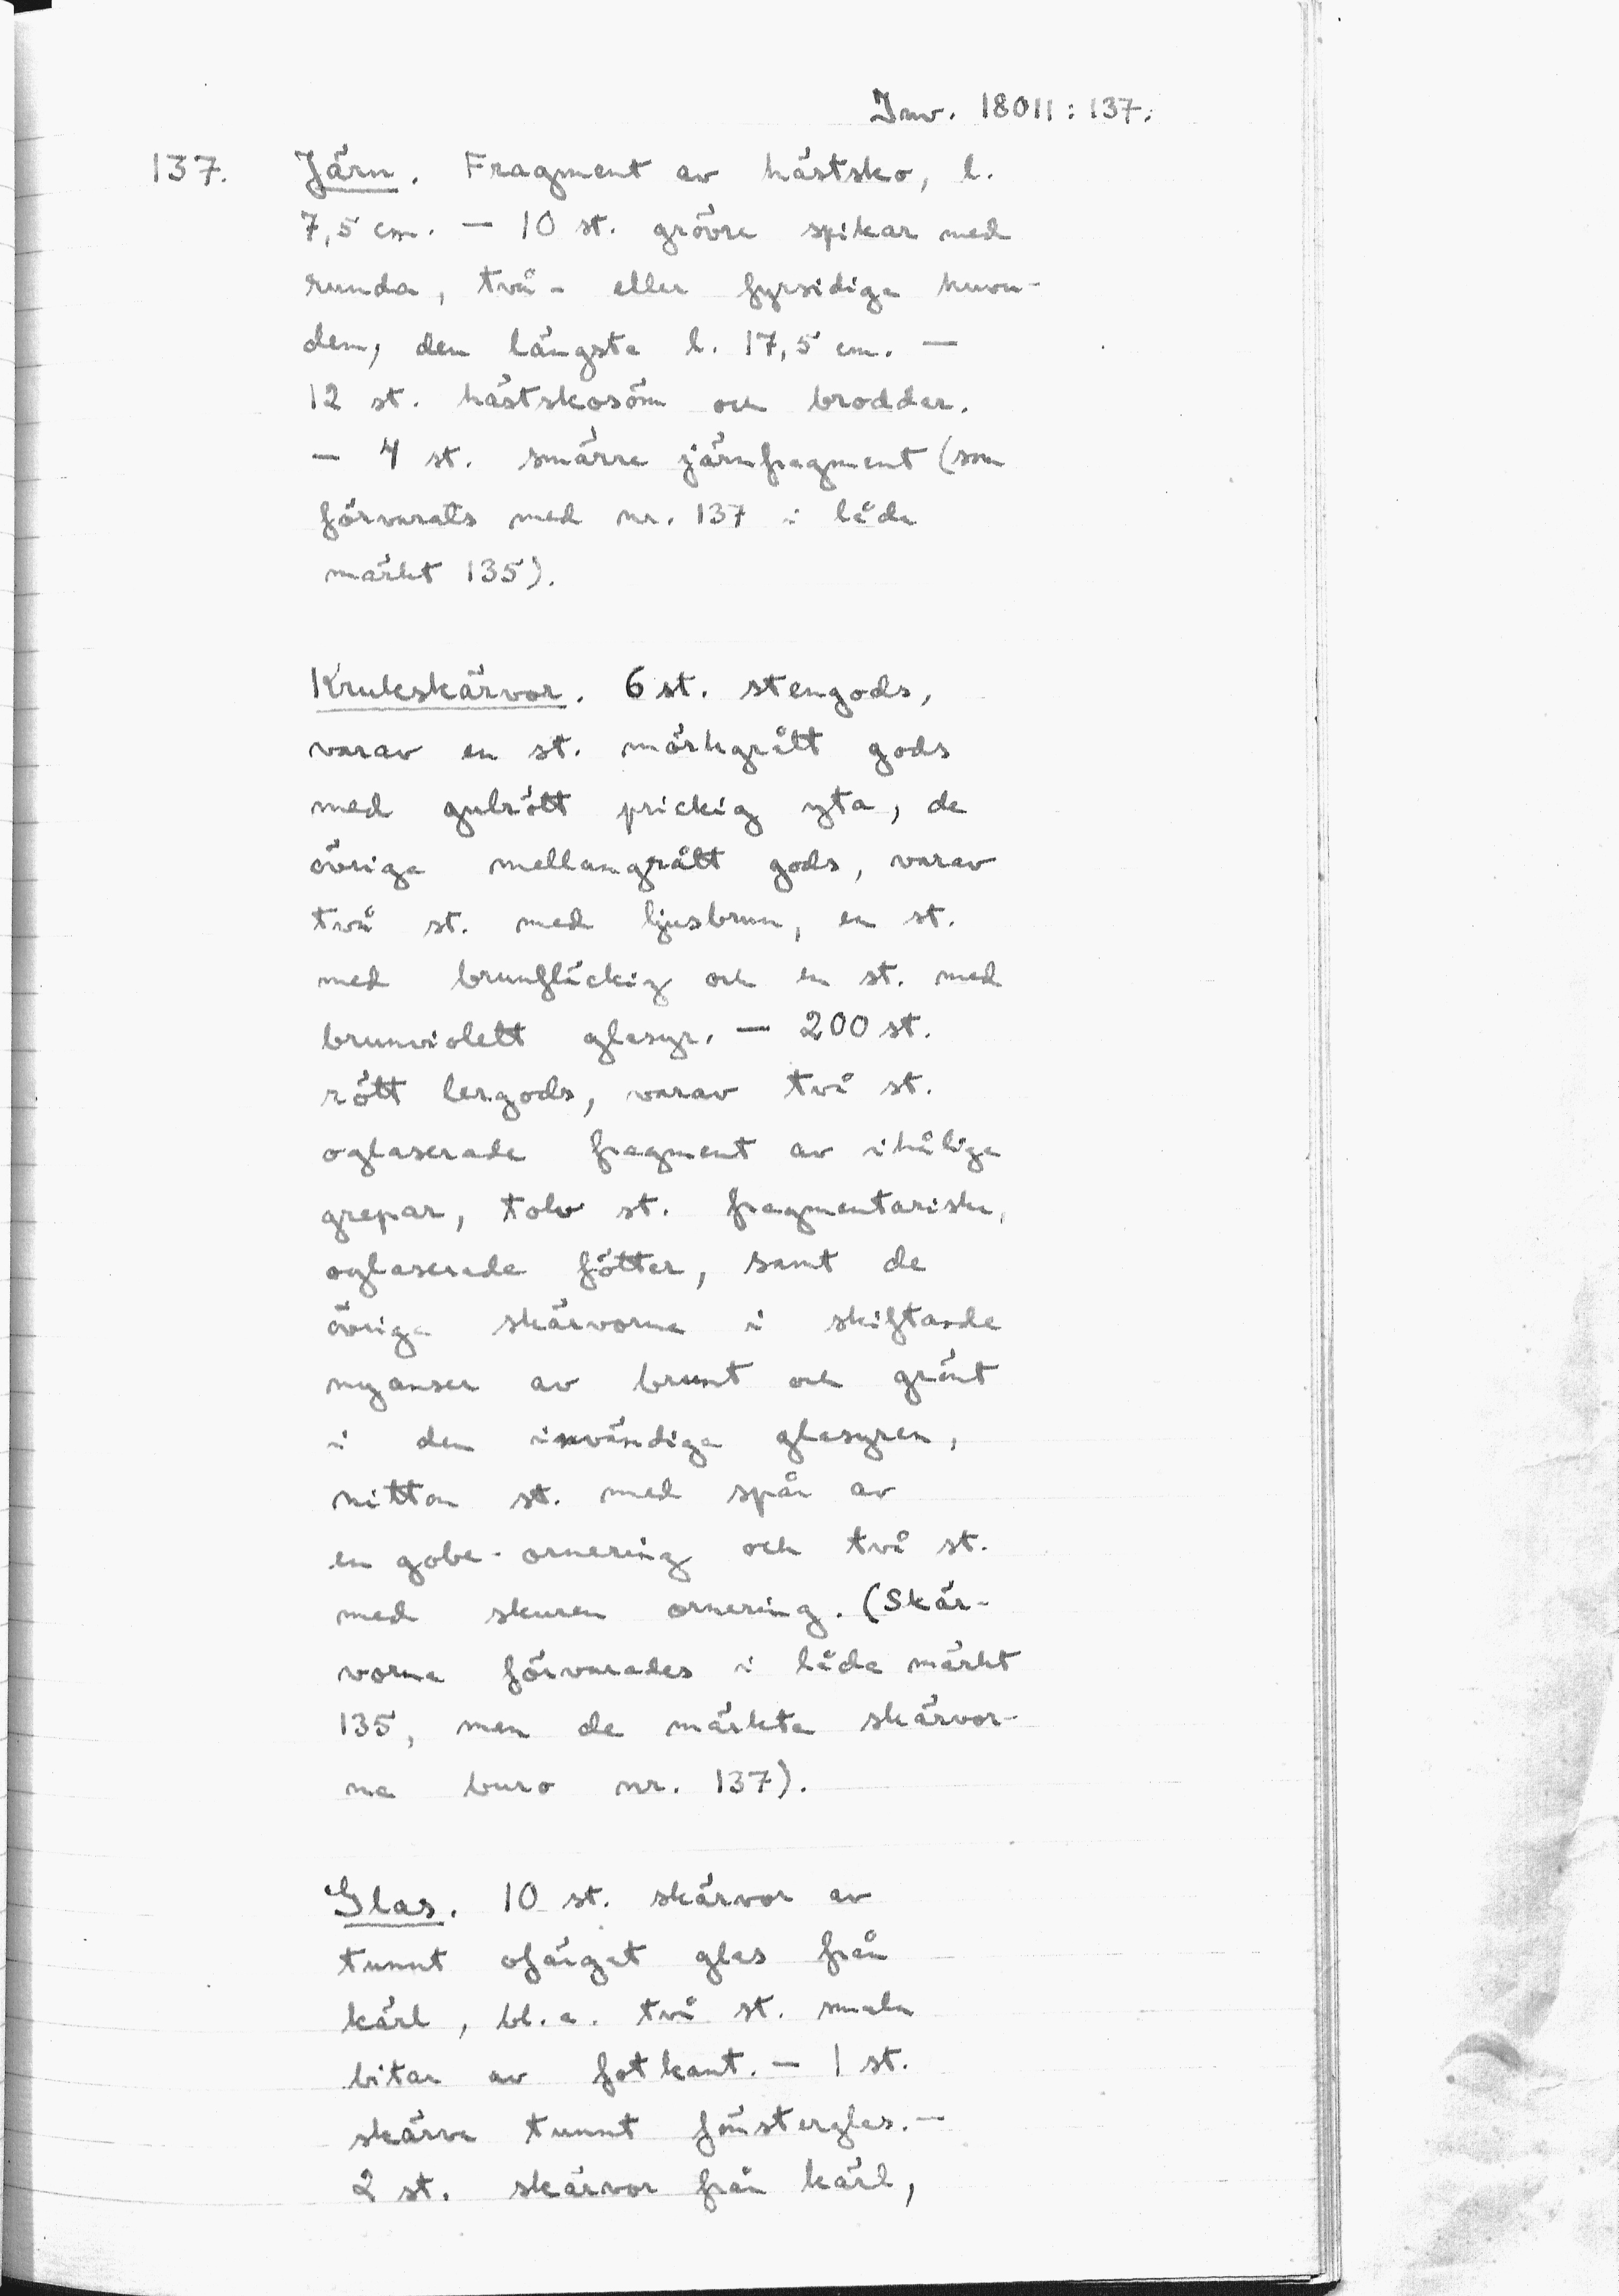 Inv. 18011:137.
137. Järn. Fragment av hästsko, l.
7,5 cm. — 10 st. grövre spikar med
runda, två- eller fyrsidiga huvu-
den, den längsta l. 17,5 cm. —
12 st. hästskosöm och broddar.
— 4 st. smärre järnfragment (som
förvarats med nr. 137 i låda
märkt 135).
Krukskärvor. 6 st. stengods,
varav en st. mörkgrått gods
med gulrött prickig yta, de
övriga mellangrått gods, varav
två st. med ljusbrun, en st.
med brunfläckig och en st. med
brunviolett glasyr. — 200 st.
rött lergods, varav två st.
oglaserade fragment av ihåliga
grepar, tolv st. fragmentariska,
oglaserade fötter, samt de
övriga skärvorna i skiftande
nyanser av brunt och grönt
i den invändiga glasyren,
nitton st. med spår av
en gobe-ornering och två st.
med skuren ornering. (Skär-
vorna förvarades i låda märkt
135, men de märkta skärvor-
na buro nr. 137).
Glas. 10 st. skärvor av
tunnt ofärgat glas från
kärl, bl.a. två st. smala
bitar av fotkant. — 1 st.
skärva tunnt fönsterglas. —
2 st. skärvor från kärl,